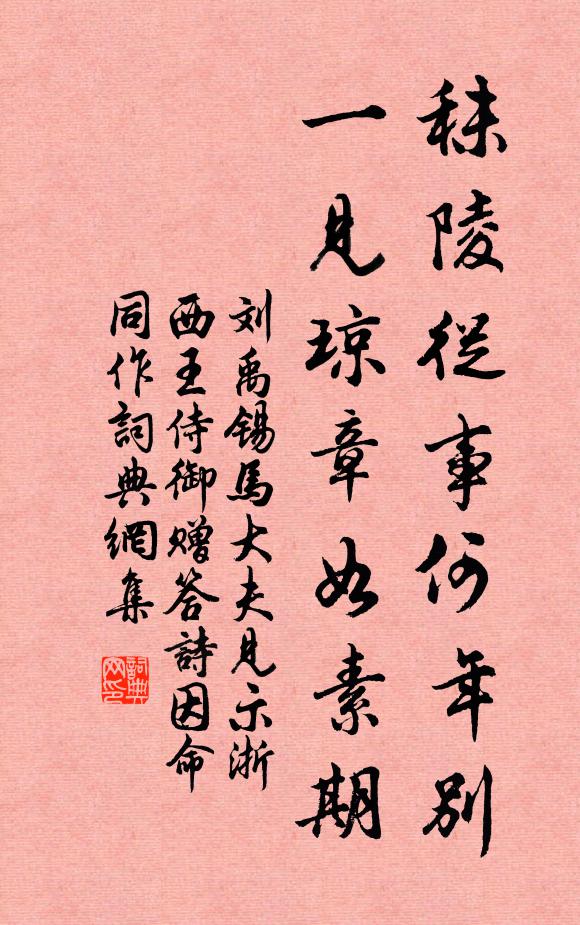 秣陵從事何年別
一見瓊章如素期
刘禹錫馬大夫見示浙
西王侍御贈答詩因命
同作詞典網集
詞典网印